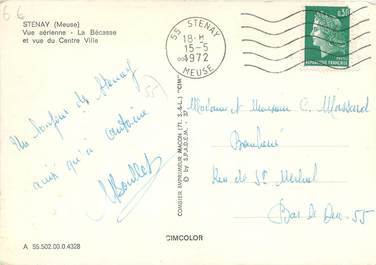 66
STENAY (Meuse)
Vue aérienne - La Bécasse
et vue du Centre Ville
55 STENAY
18 H
15-5
1972
MEUSE
0,30
REPUBLIQUE FRANCAISE
Un bonjour de Stenay
ainsi qu'à
COMBIER IMPRIMEUR MACON (71, S.-&-L.) "CIM"
© by S.P.A.D.E.M. - 37
Madame et Monsieur C. Massard
Rue de St Michel
Bar le Duc - 55
A 55.502.00.0.4328
CIMCOLOR